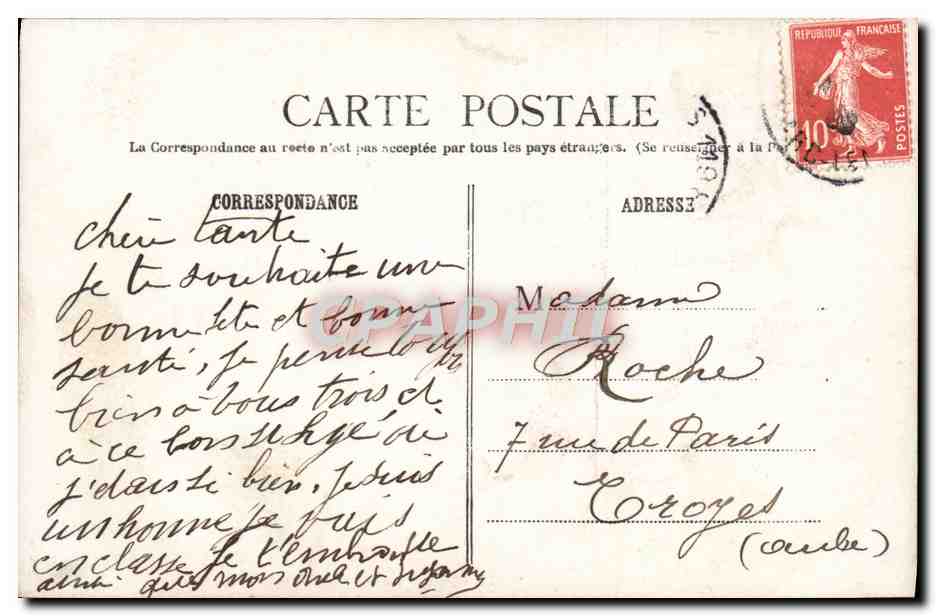 RÉPUBLIQUE FRANÇAISE
10
POSTES
CARTE POSTALE
La Correspondance au recto n'est pas acceptée par tous les pays étrangers. (Se renseigner à la
CORRESPONDANCE
chère tante
je te souhaite une
bonne fête et bonne
santé, je pense toujours
bien à vous trois et
à ce bon
j'étais si bien, je suis
un homme je vais
en classe je t'embrasse
ainsi que mon oncle et
ADRESSE
Madame
Roche
7 rue de Paris
Troyes
(aube)
CPAPHIL